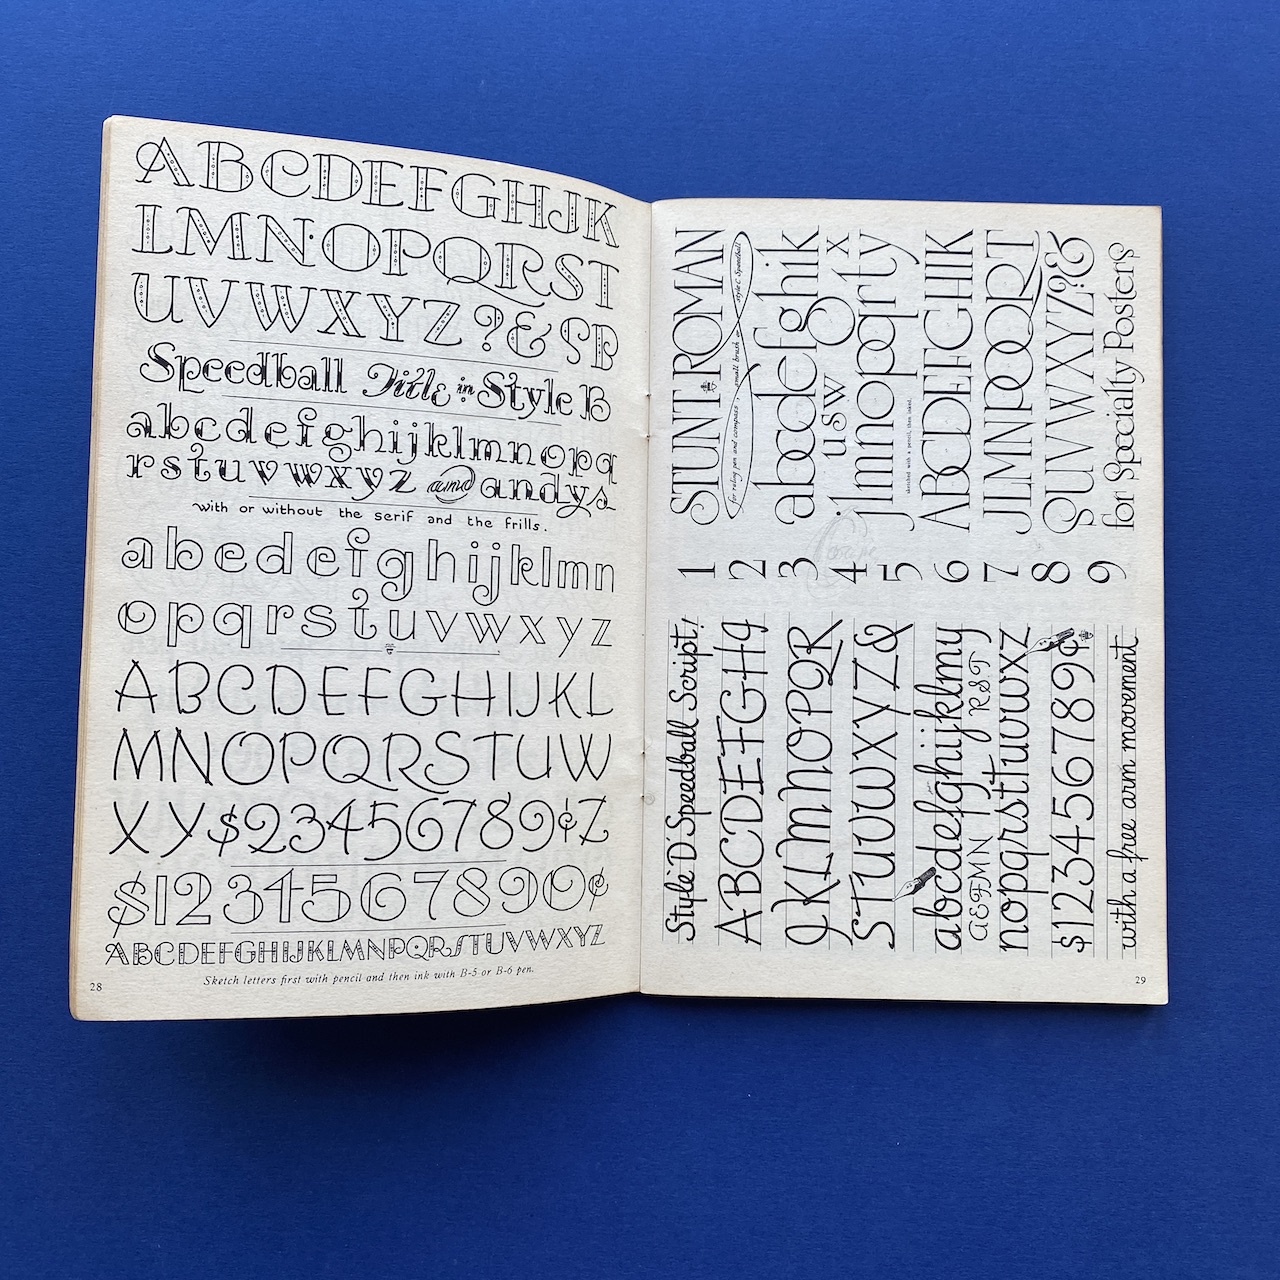 ABCDEFGHIJK
LMN·OPQRST
UVWXYZ?& SB
Speedball Title in Style B
abcdefghijklmnopq
rstuvwxyz and andys
with or without the serif and the frills.
abcdefghijklmn
opqrstuvwxyz
ABCDEFGHIJKL
MNOPQRSTUW
XY$23456789¢Z
$1234567890¢
ABCDEFGHIJKLMNPQRSTUVWXYZ
Sketch letters first with pencil and then ink with B-5 or B-6 pen.
28
STUNT ROMAN
for ruling pen and compass, small brush or style C Speedball
abcdefghik
usw x
jlmnopqrty
sketched with a pencil, then inked.
ABCDEFGHIK
JLMNPOQRT
SUVWXYZ?&
for Specialty Posters
1 2 3 4 5 6 7 8 9
Style 'D' Speedball Script!
ABCDEFGHg
JKLMNOPQR
STUVWXYZ&
abcdefghijklmy
AEFMN RST
nopqrsttuvwxz
$123456789¢
with a free arm movement
29